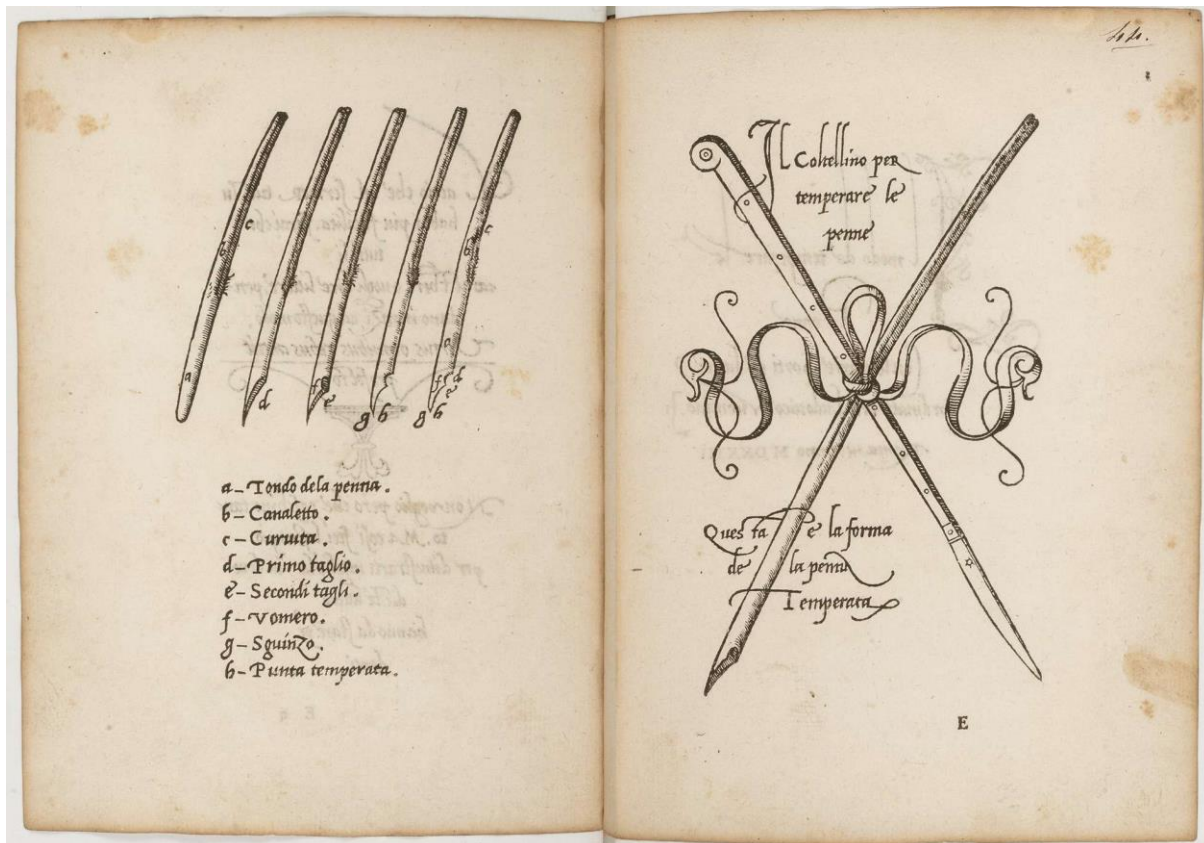 c
b
a
d
f
e
g h
b
c
a
f d
e
g h
a – Tondo dela penna.
b – Canaletto.
c – Curuita.
d – Primo taglio.
e – Secondi tagli.
f – Vomero.
g – Sguinzo.
h – Punta temperata.
44.
Il Coltellino per
temperare le
penne
Questa e la forma
de la penna
Temperata
E